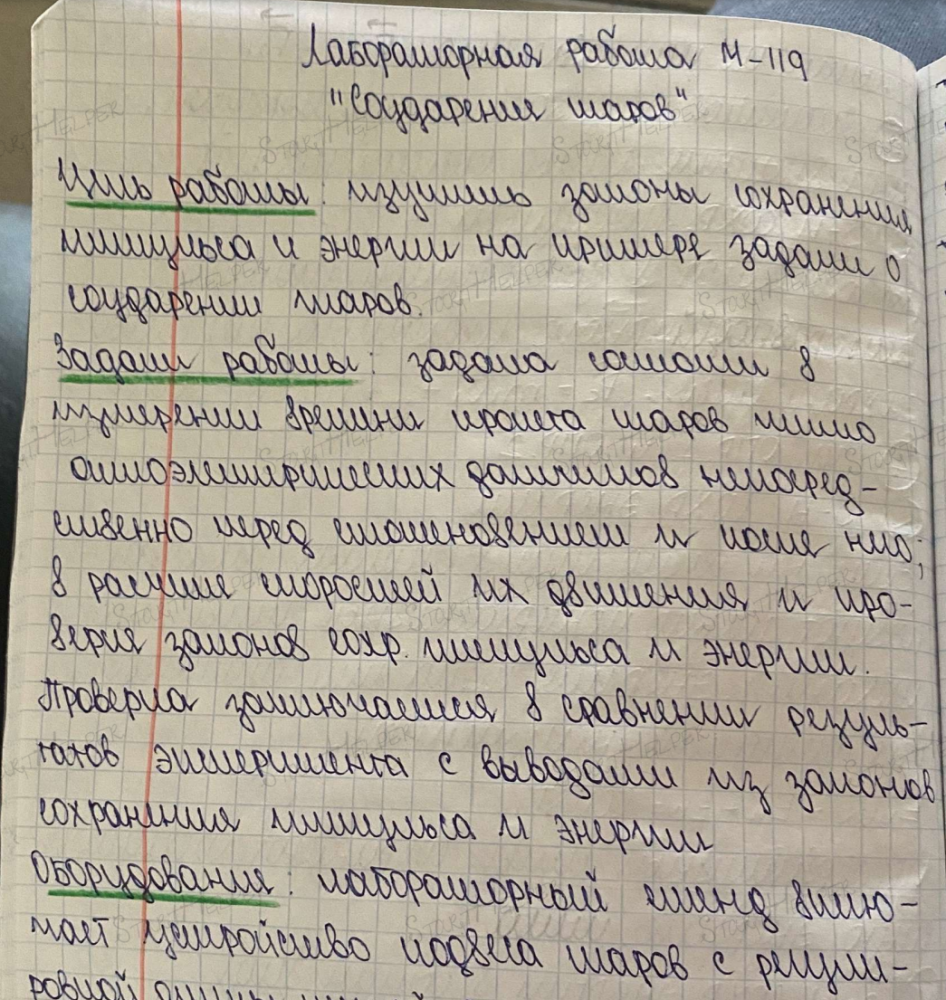 Лабораторная работа М-119
"Соударения шаров"
Цель работы: изучить законы сохранения
импульса и энергии на примере задачи о
соударении шаров.
Задачи работы: задача состоит в
измерении времени пролета шаров мимо
оптоэлектрических датчиков непосред-
ственно перед столкновением и после него;
в расчете скоростей их движения и про-
верка законов сохр. импульса и энергии.
Проверка заключается в сравнении резуль-
татов эксперимента с выводами из законов
сохранения импульса и энергии
Оборудование: лабораторный стенд вклю-
чает устройство подвеса шаров с регули-
ровкой
START HELPER